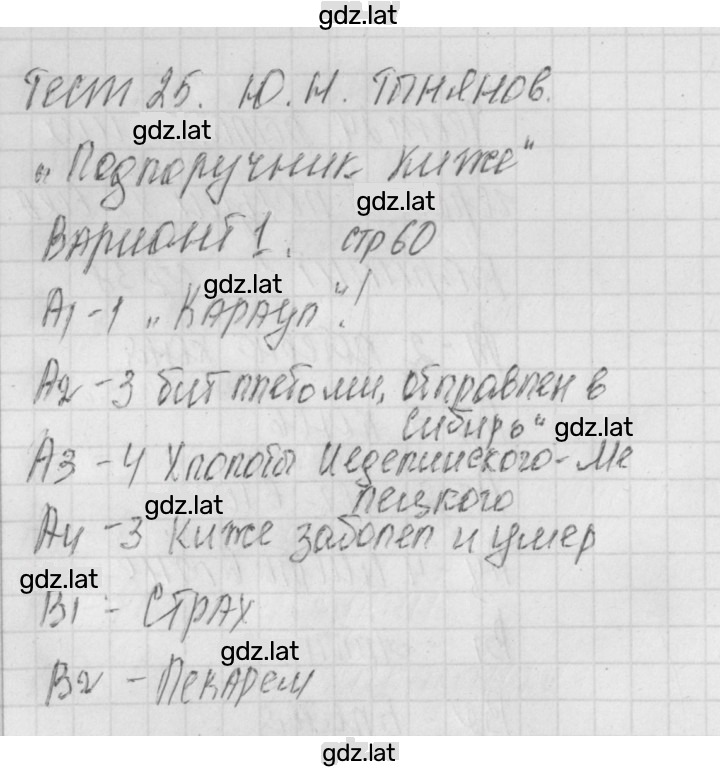 gdz.lat
Тест 25. Ю.Н. Тынянов.
gdz.lat
„Подпоручник Киже"
gdz.lat
Вариант 1. стр 60
gdz.lat
А1-1 „Караул"!
А2-3 бит плетоми, отправлен в
Сибирь" gdz.lat
А3-4 Хлопоты
пецкого
gdz.lat
А4-3 Киже заболел и умер
gdz.lat
В1 - Страх
gdz.lat
В2 - Лекарем
gdz.lat